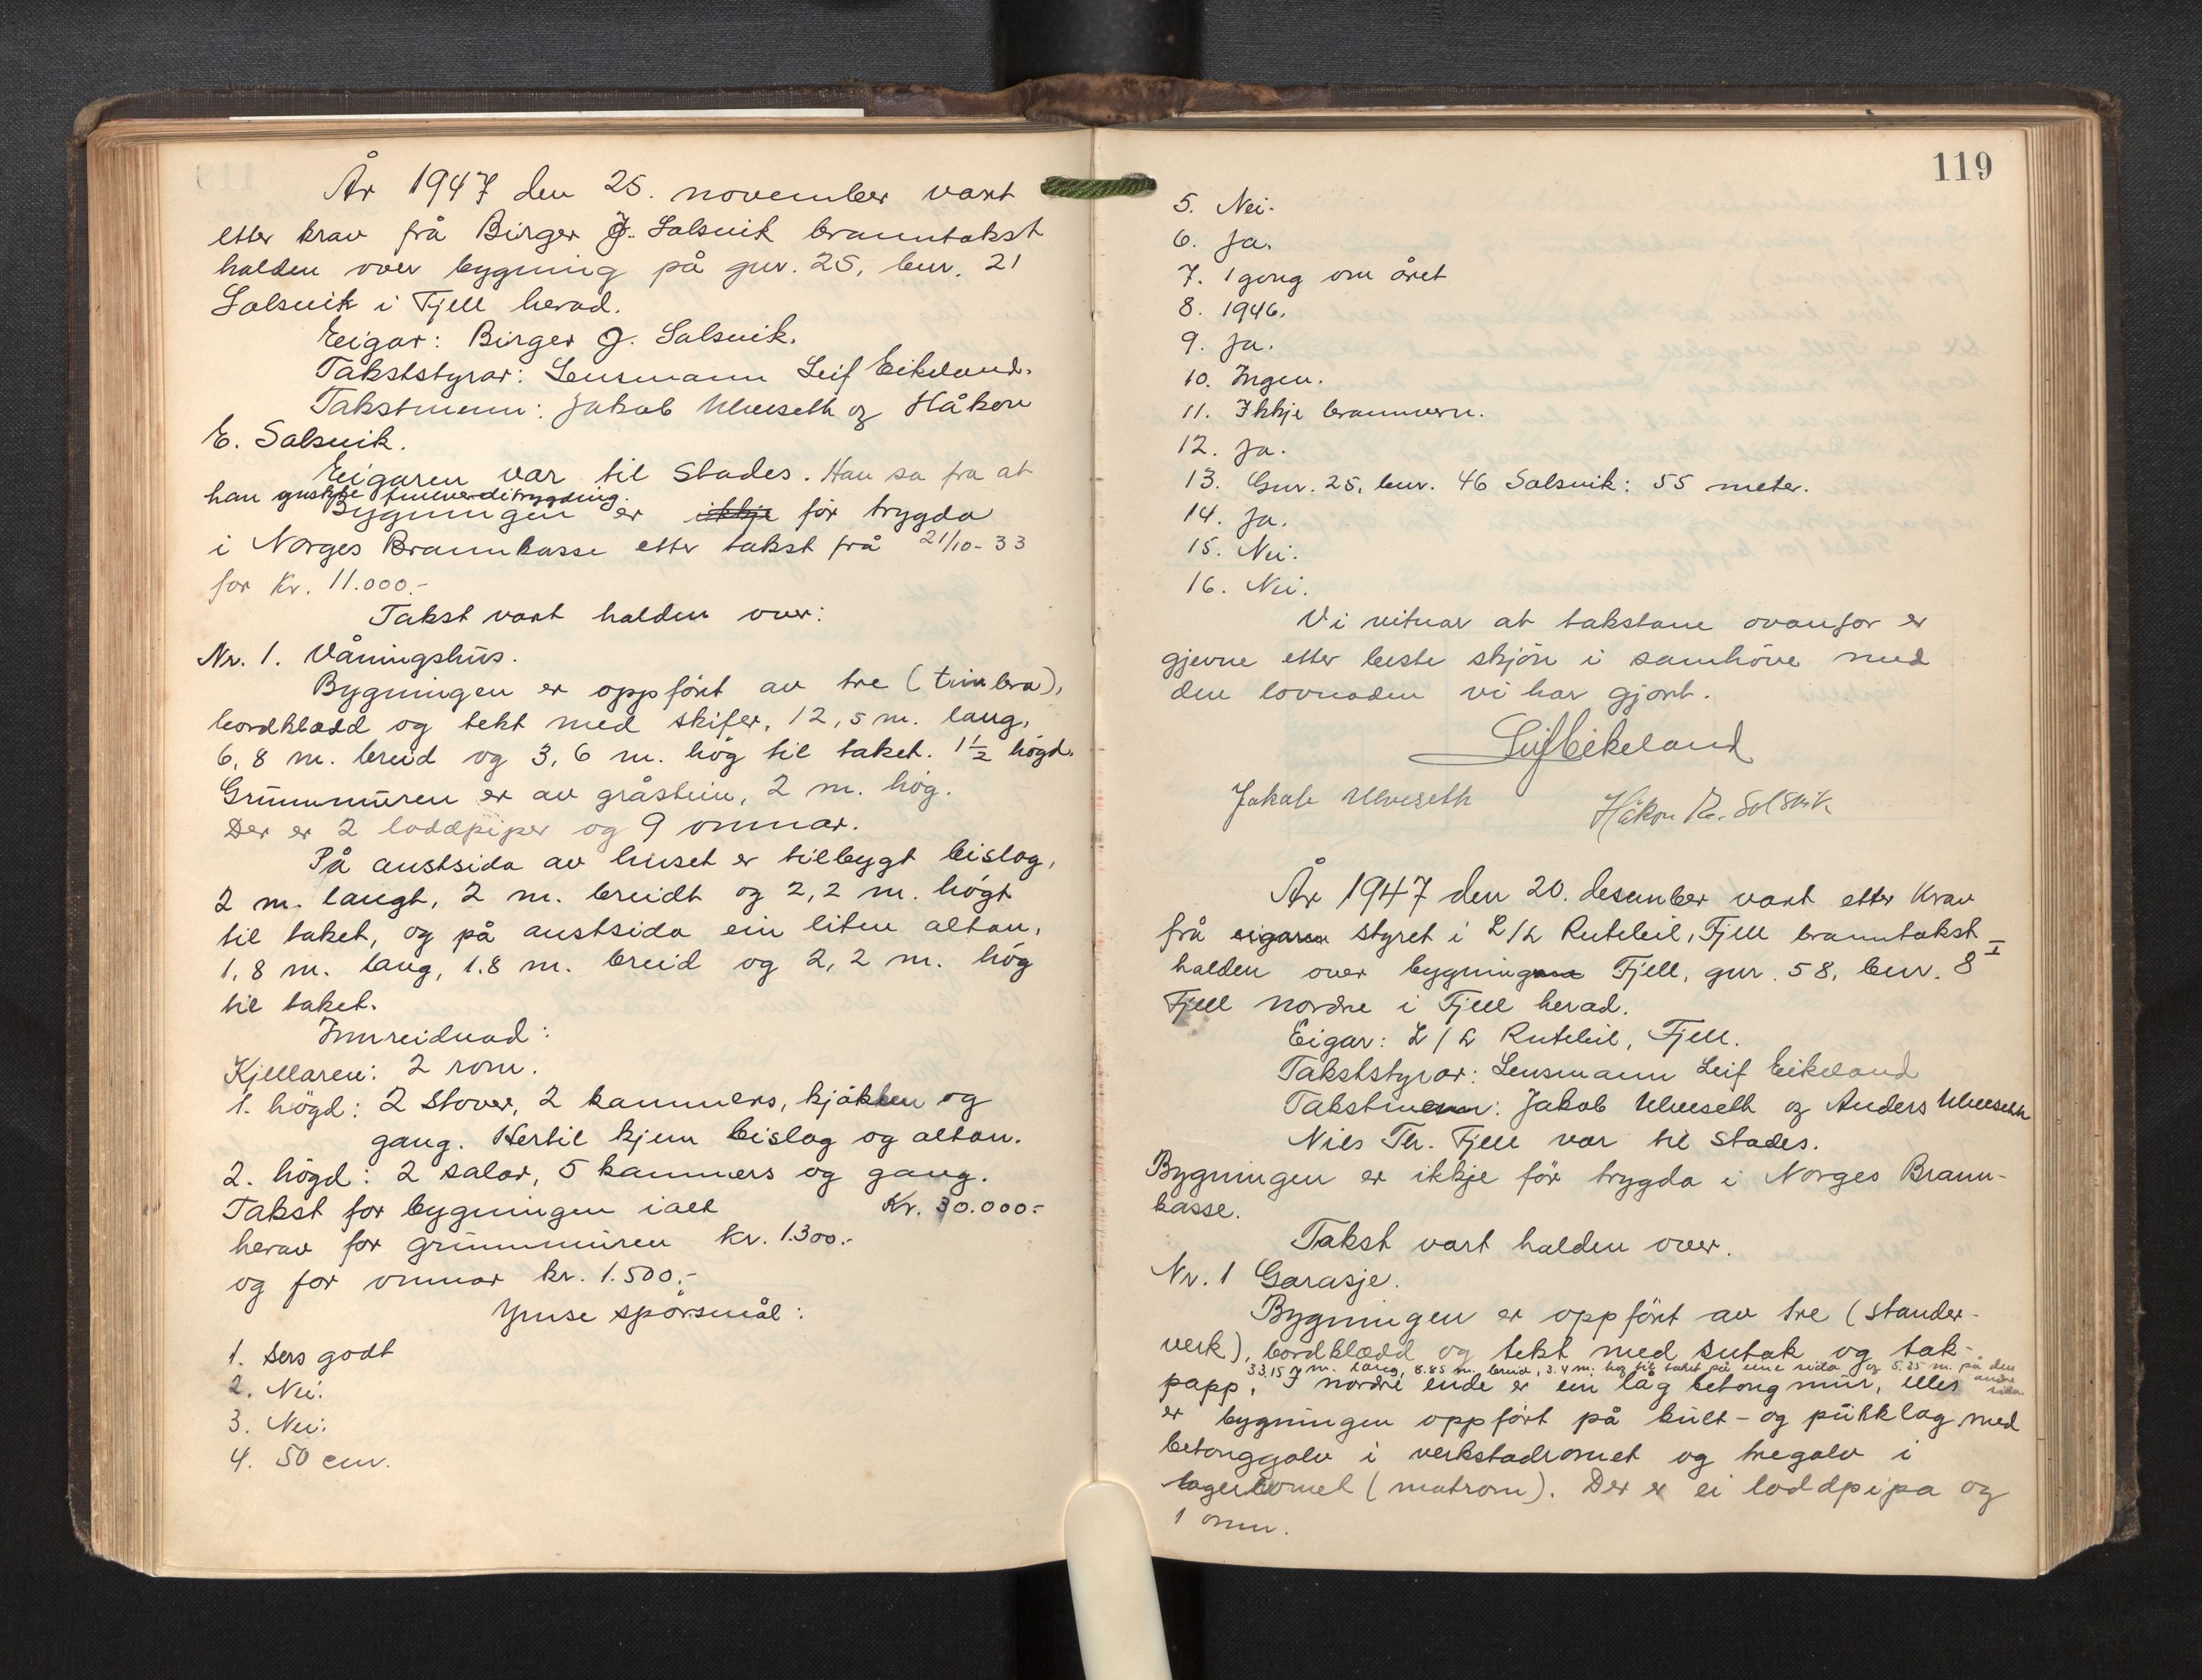 År 1947 den 25. november vart
etter krav frå Birger J. Solsvik branntakst
halden over bygning på gnr. 25, bnr. 21
Solsvik i Fjell herad.
Eigar: Birger J. Solsvik.
Takststyrar: Lensmann Leif Eikeland.
Takstmenn: Jakob Ulveseth og Håkon
E. Solsvik.
Eigaren var til stades. Han sa fra at
han ynskte fullverditrygding.
Bygningen er ikkje för trygda
i Norges Brannkasse etter takst frå 21/10-33
for Kr. 11.000.-
Takst vart halden over:
Nr. 1. Våningshus.
Bygningen er oppfört av tre (timbra),
bordklædd og tekt med skifer, 12,5 m. lang,
6,8 m. breid og 3,6 m. hög til taket. 1 1/2 högd.
Grunnmuren er av gråstein, 2 m. hög.
Der er 2 loddpiper og 9 omnar.
På austsida av huset er tilbygt bislag,
2 m. langt, 2 m. breidt og 2,2 m. högt
til taket, og på austsida ein liten altan,
1,8 m. lang, 1.8 m. breid og 2,2 m. hög
til taket.
Innreidnad:
Kjellaren: 2 rom.
1. högd: 2 stover, 2 kammers, kjökken og
gang. Hertil kjem bislag og altan.
2. högd: 2 salar, 5 kammers og gang.
Takst for bygningen ialt Kr. 30.000:-
herav for grunnmuren kr. 1.300.-
og for omnar kr. 1.500.-
Ymse spörsmål:
1. Sers godt
2. Nei.
3. Nei.
4. 50 cm.
119
5. Nei.
6. Ja.
7. 1 gong om året
8. 1946.
9. Ja.
10. Ingen.
11. Ikkje brannvern.
12. Ja.
13. Gnr. 25, bnr. 46 Solsvik: 55 meter.
14. Ja.
15. Nei.
16. Nei.
Vi vitnar at takstane ovanfor er
gjevne etter beste skjön i samhöve med
den lovnaden vi har gjort.
Leif Eikeland
Jakob Ulveseth Håkon E. Solsvik
År 1947 den 20. desember vart etter krav
frå eigaren styret i L/L Rutebil, Fjell branntakst
halden over bygningane Fjell, gnr. 58, bnr. 8 I
Fjell nordre i Fjell herad.
Eigar: L/L Rutebil, Fjell.
Takststyrar: Lensmann Leif Eikeland
Takstmenn: Jakob Ulveseth og Anders Ulveseth
Nils Th. Fjell var til stades.
Bygningen er ikkje för trygda i Norges Brann-
kasse.
Takst vart halden over.
Nr. 1 Garasje.
Bygningen er oppfört av tre (stender-
verk), bordklædd og tekt med sutak og tak-
33.15 m. lang, 8.85 m. breid, 3.4 m. hög til taket på eine sida og 5.25 m. på den
andre sida.
papp, I nordre ende er ein låg betongmur, elles
er bygningen oppfört på kult- og pukklag med
betonggolv i verkstadromet og tregolv i
lagerromet (matrom). Der er ei loddpipa og
1 omn.